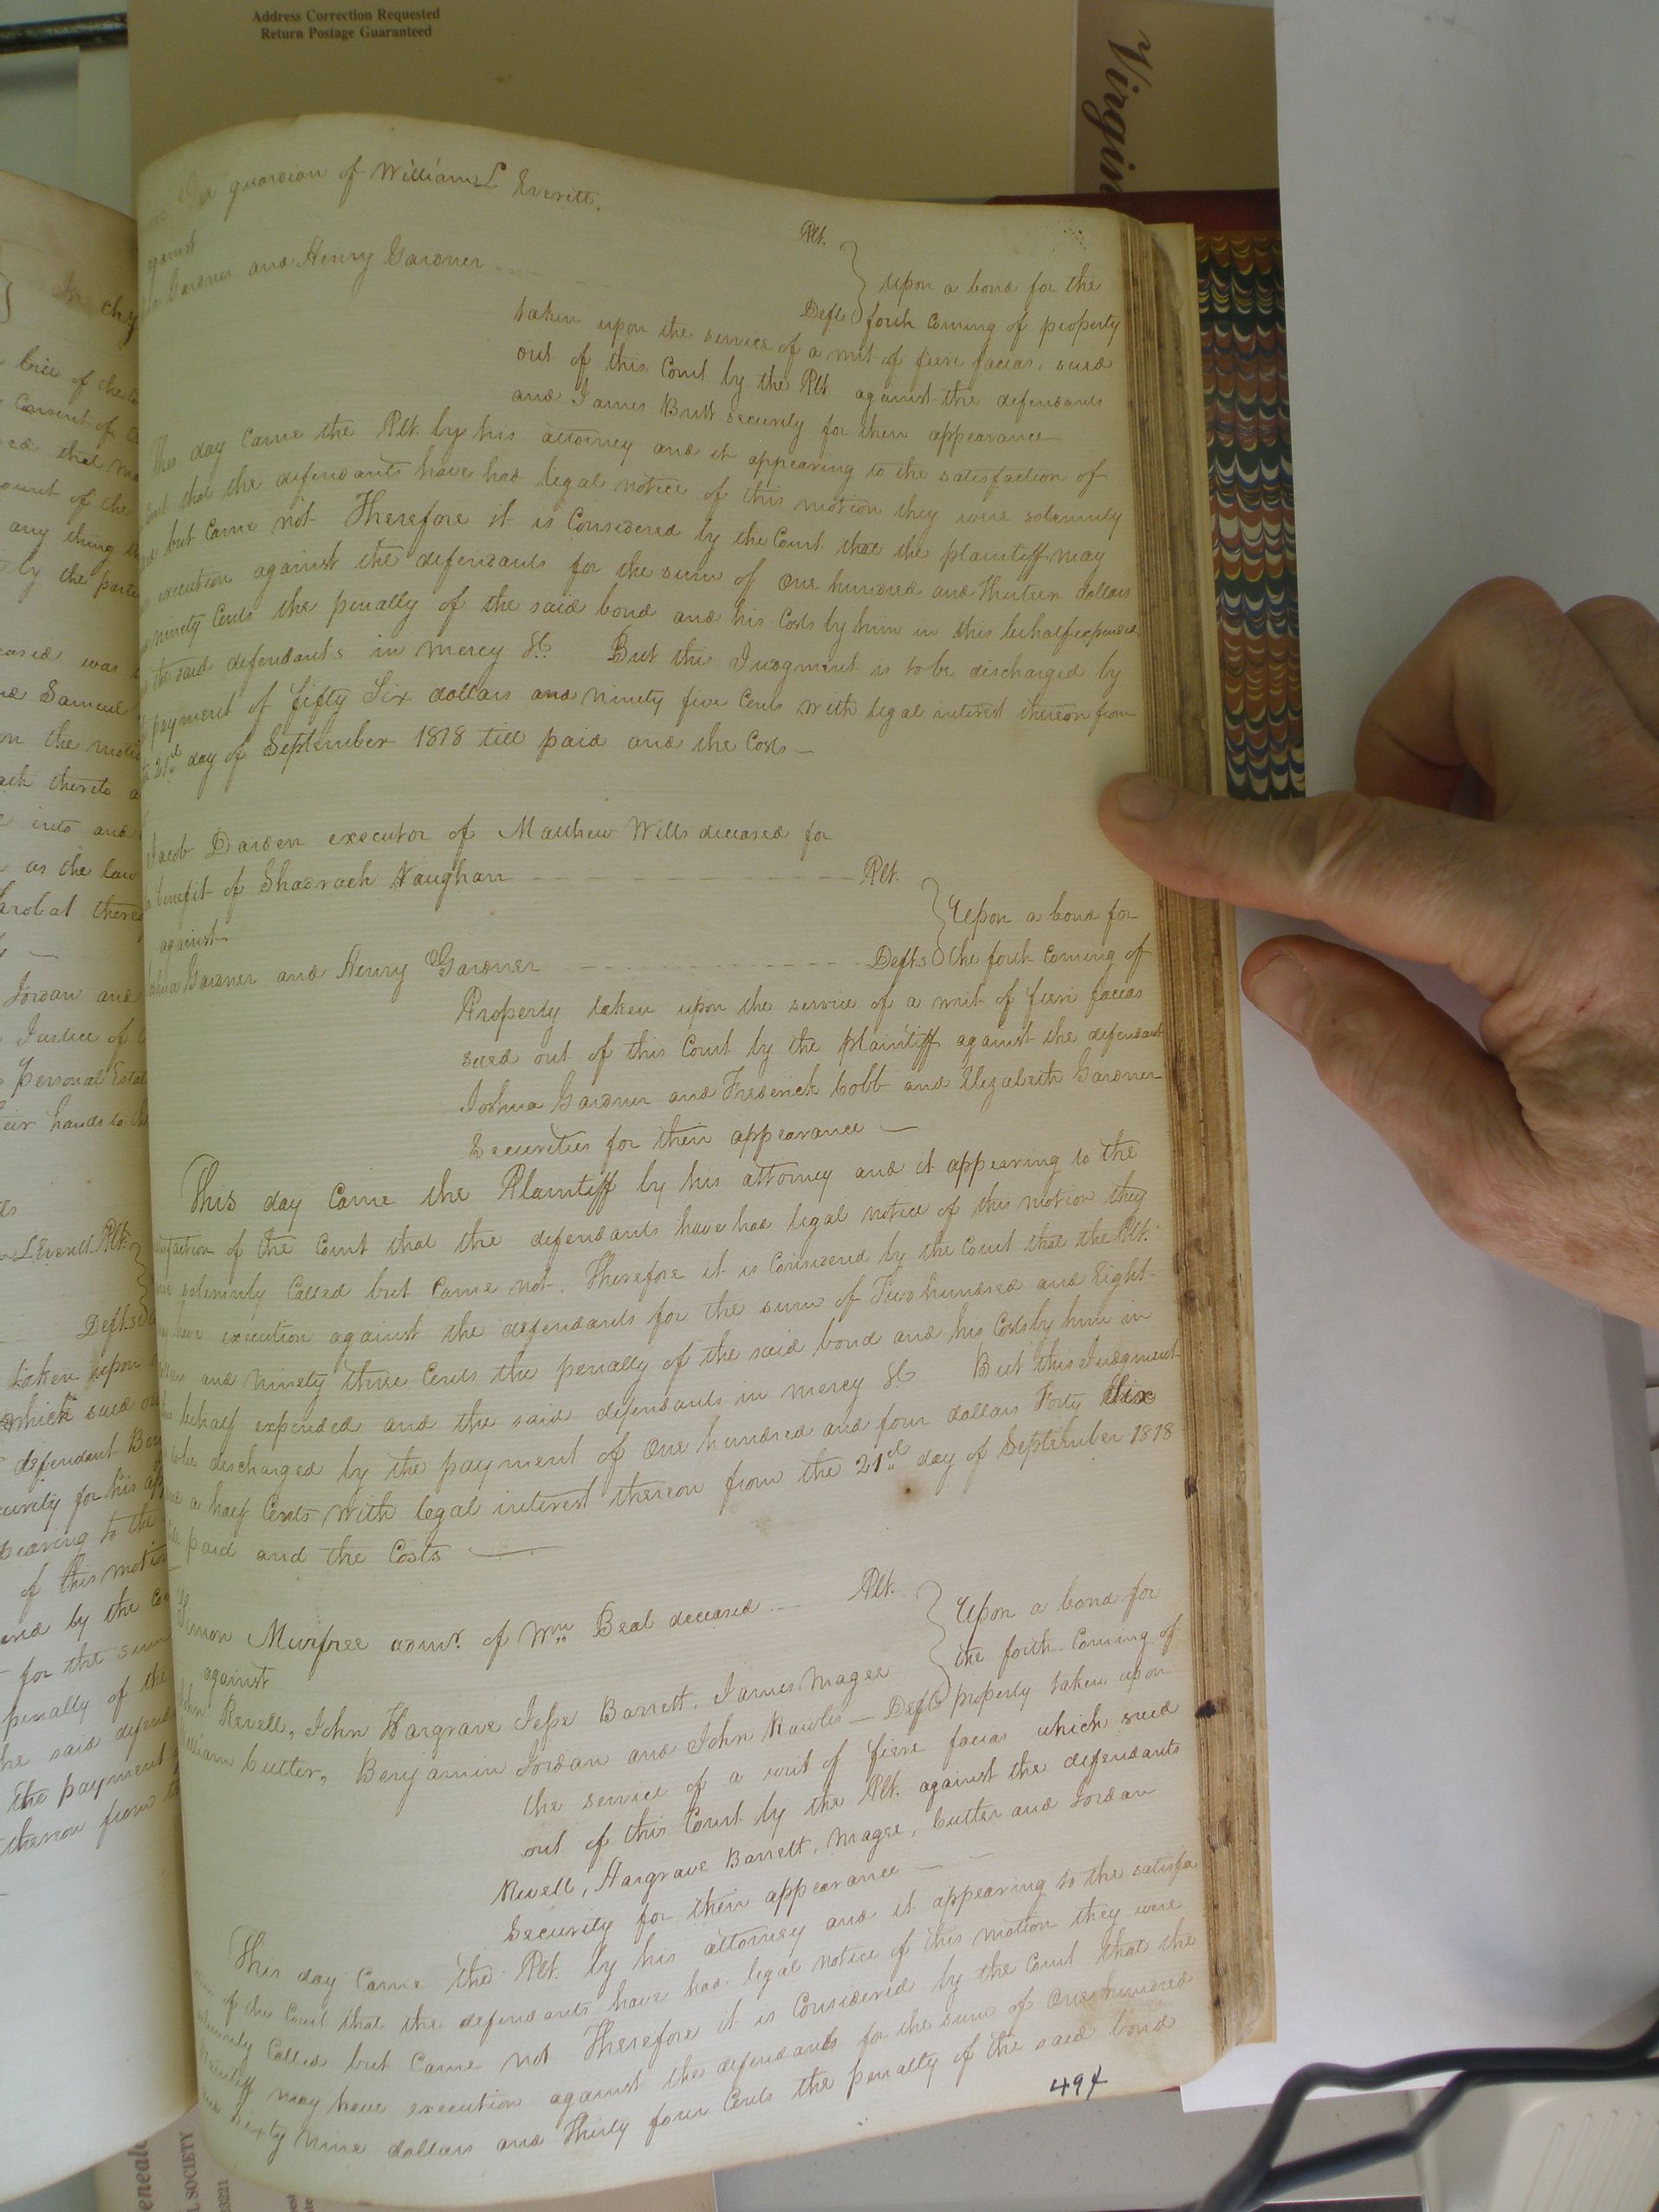 Address Correction Requested
Return Postage Guaranteed
Virgin
guardian of William L Everitt.
Plt.
against
Gardner and Henry Gardner
Defts
Upon a bond for the
forth Coming of property
taken upon the service of a writ of fieri facias, sued
out of this Court by the Plt against the defendants
and James Britt security for their appearance
This day Came the Plt. by his attorney and it appearing to the satisfaction of
Court that the defendants have had legal notice of this motion they were solemnly
but Came not Therefore it is Considered by the Court that the plaintiff may
execution against the defendants for the sum of One hundred and thirteen dollars
ninety Cents the penalty of the said bond and his Costs by him in this behalf expended
the said defendants in mercy &c But this Judgment is to be discharged by
payment of fifty Six dollars and ninety five Cents with legal interest thereon from
21st day of September 1818 till paid and the Costs
Jacob Darden executor of Matthew Wills deceased for
benefit of Shadrach Vaughan Plt.
against
Joshua Gardner and Henry Gardner Defts
Upon a bond for
the forth Coming of
Property taken upon the service of a writ of fieri facias
sued out of this Court by the plaintiff against the defendant
Joshua Gardner and Frederick Cobb and Elizabeth Gardner
Securities for their appearance
This day Came the Plaintiff by his attorney and it appearing to the
satisfaction of the Court that the defendants have had legal notice of this motion they
solemnly Called but Came not. Therefore it is Considered by the Court that the Plt.
have execution against the defendants for the sum of Two hundred and Eight
and ninety three Cents the penalty of the said bond and his Costs by him in
behalf expended and the said defendants in mercy &c But this Judgment
to be discharged by the payment of One hundred and four dollars Forty Six
and a half Cents with legal interest thereon from the 21st day of September 1818
till paid and the Costs
Simon Murfree admr. of Wm Beal deceased Plt.
against
John Revell, John Hargrave Jesse Barrett, James Magee
William Cutler, Benjamin Jordan and John Rawls Defts
Upon a bond for
the forth Coming of
property taken upon
the service of a writ of fieri facias which sued
out of this Court by the Plt. against the defendants
Revell, Hargrave Barrett, Magee, Cutler and Jordan
Security for their appearance
This day Came the Plt. by his attorney and it appearing to the satisfa
of the Court that the defendants have had legal notice of this motion they were
solemnly Called but Came not Therefore it is Considered by the Court that the
plaintiff may have execution against the defendants for the sum of One hundred
and sixty nine dollars and Thirty four Cents the penalty of the said bond
494